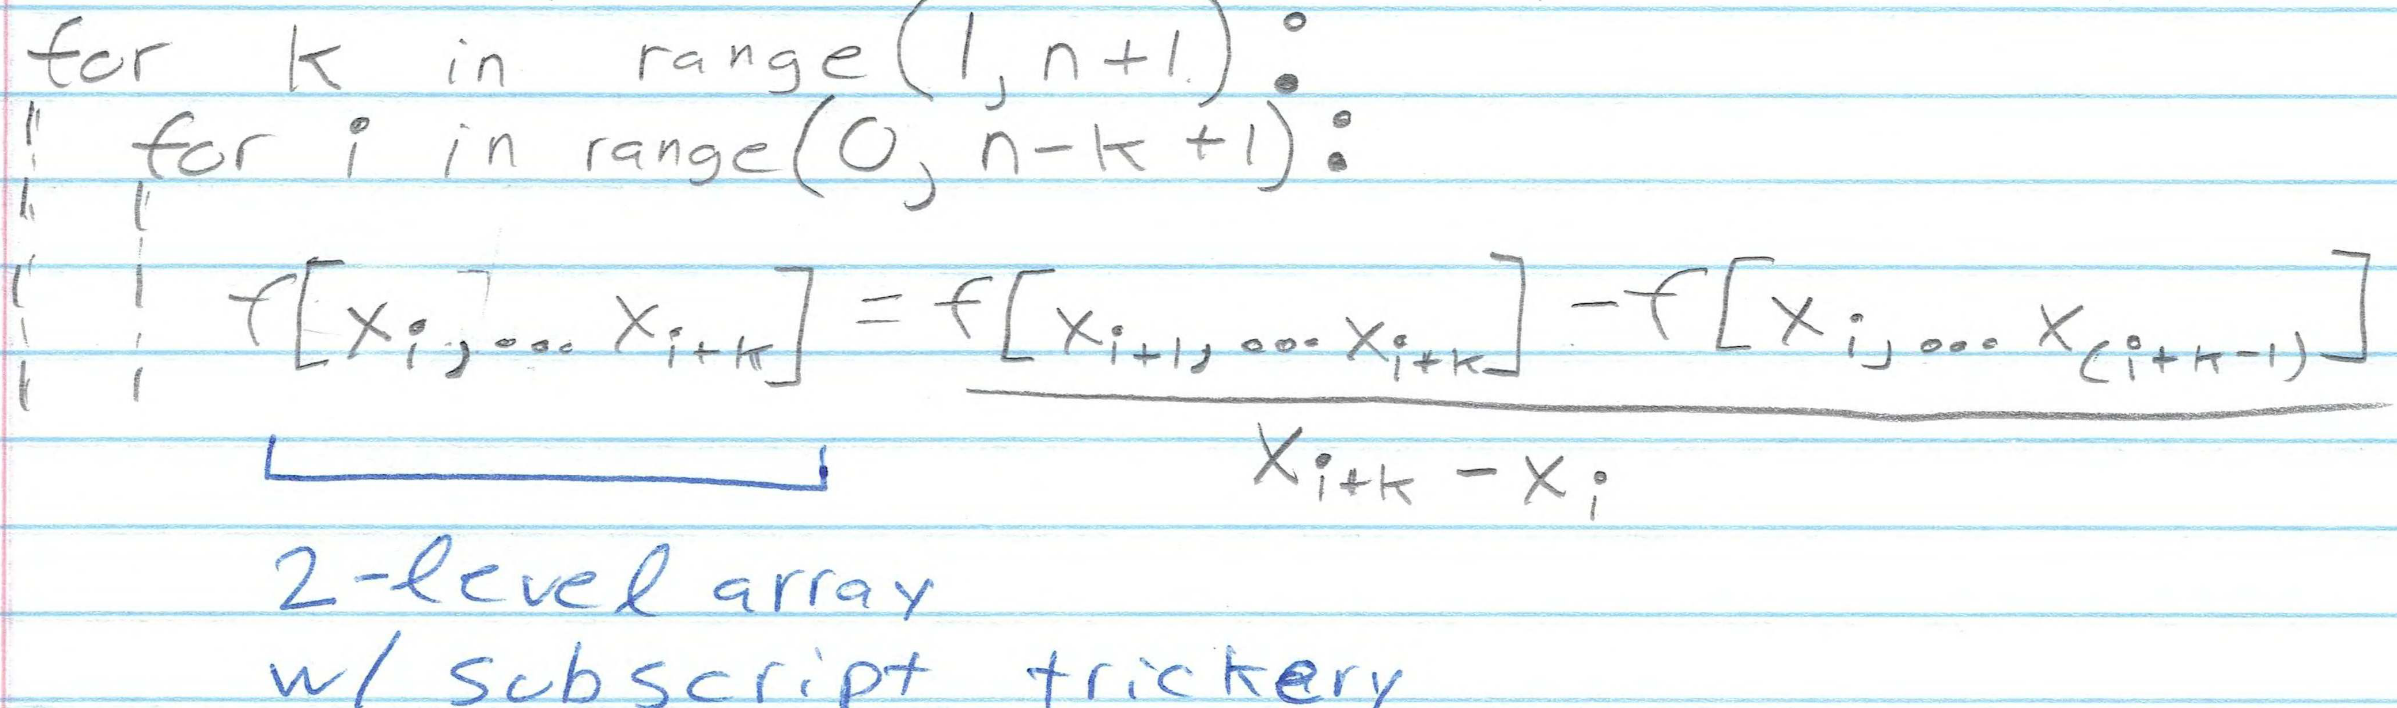 for k in range(1, n+1):
for i in range(0, n-k+1):
f[x_i, ... x_{i+k}] = f[x_{i+1}, ... x_{i+k}] - f[x_i, ... x_{(i+k-1)}]
x_{i+k} - x_i
2-level array
w/ subscript trickery